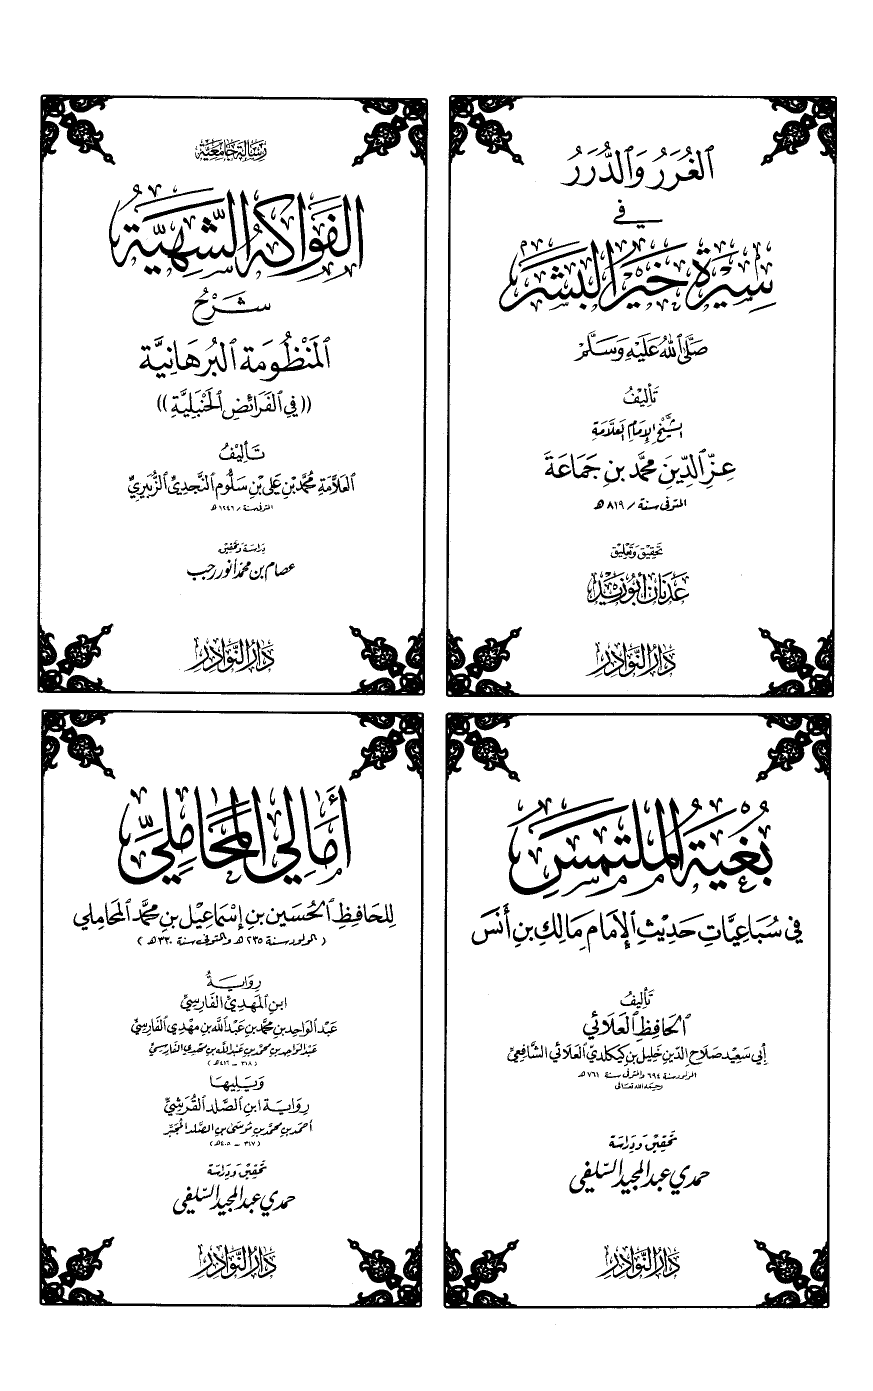 الغُرَرُ وَالدُّرَرُ
في
سِيرَةِ خَيْرِ البَشَرِ
صَلَّى اللهُ عَلَيْهِ وَسَلَّمَ
تَأْلِيفُ
الشَّيْخِ الإِمَامِ العَلَّامَةِ
عِزِّ الدِّينِ مُحَمَّدِ بنِ جَمَاعَةَ
المتوفى سنة / ٨١٩ هـ
تحقيق وتعليق
عدنان أبو زيد
دَارُ النَّوَادِرِ
رسالة جامعية
الفَوَاكِهُ الشَّهِيَّةُ
شَرْحُ
المَنْظُومَةِ البُرْهَانِيَّةِ
((في الفَرَائِضِ الحَنْبَلِيَّةِ))
تَأْلِيفُ
العَلَّامَةِ مُحَمَّدِ بْنِ عَلِيِّ بْنِ سَلُّومِ النَّجْدِيِّ الزُّبَيْرِيِّ
المتوفى سنة / ١٢٤٦ هـ
دراسة وتحقيق
عصام بن محمد أنور رجب
دَارُ النَّوَادِرِ
بُغْيَةُ المُلْتَمِسِ
في سُبَاعِيَّاتِ حَدِيثِ الإِمَامِ مَالِكِ بنِ أَنَسَ
تَأْلِيفُ
الحَافِظِ العَلَائِي
أَبِي سَعِيد صَلَاحِ الدِّينِ خَلِيلِ بنِ كَيْكَلْدِيّ العَلَائِي الشَّافِعِيِّ
المولود سنة ٦٩٤ والمتوفى سنة ٧٦١ هـ
رحمه الله تعالى
تحقيق ودراسة
حمدي عبد المجيد السلفي
دَارُ النَّوَادِرِ
أَمَالِي المَحَامِلِيِّ
لِلحَافِظِ الحُسَيْنِ بنِ إِسْمَاعِيلَ بنِ مُحَمَّد المَحَامِلِي
( المولود سنة ٢٣٥ هـ والمتوفى سنة ٣٣٠ هـ )
رِوَايَةُ
ابنِ المَهْدِيِّ الفَارِسِيِّ
عَبْدِ الوَاحِدِ بنِ مُحَمَّدِ بنِ عَبْدِ اللهِ بنِ مَهْدِي الفَارِسِيِّ
عبد الواحد بن محمد بن عبد الله بن مهدي الفارسي
(٣١٨ - ٤١٦ هـ)
وَيَلِيهَا
رِوَايَةُ ابنِ الصَّلْتِ القُرَشِيِّ
أحمد بن محمد بن موسى بن الصلت المجبر
(٣١٧ - ٤٠٥ هـ)
تحقيق ودراسة
حمدي عبد المجيد السلفي
دَارُ النَّوَادِرِ